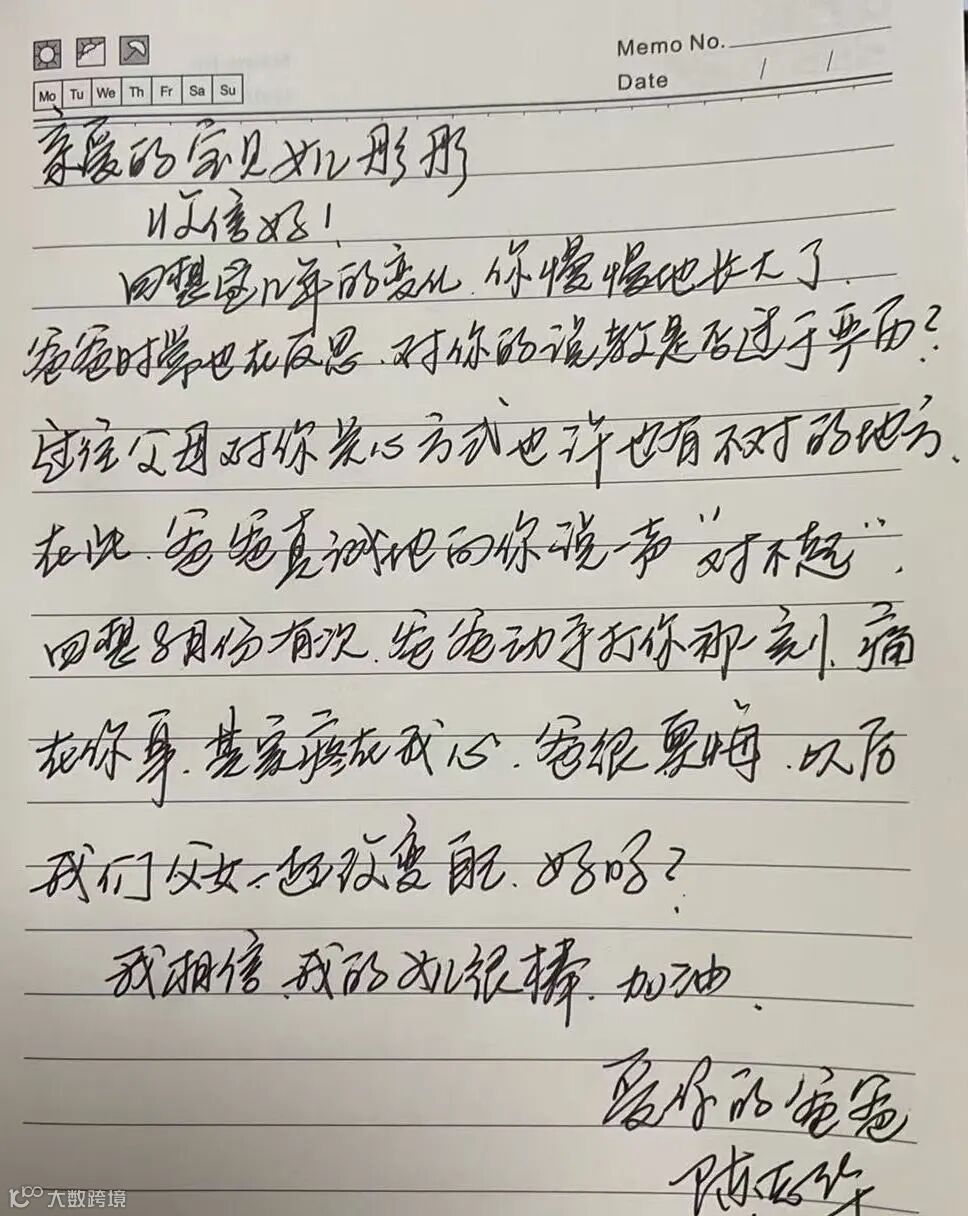 Memo No.
Date / /
Mo Tu We Th Fr Sa Su
亲爱的宝贝女儿彤彤
收信好!
回想这几年的变化,你慢慢地长大了.
爸爸时常也在反思,对你的说教是否过于严厉?
过往父母对你关心方式也许也有不对的地方,
在此,爸爸真诚地向你说一声“对不起”,
回想8月份有次,爸爸动手打你那一刻,痛
在你身,其实疼在我心,爸很懊悔,以后
我们父女一起改变自己,好吗?
我相信,我的女儿很棒,加油.
爱你的爸爸
陈
大数跨境